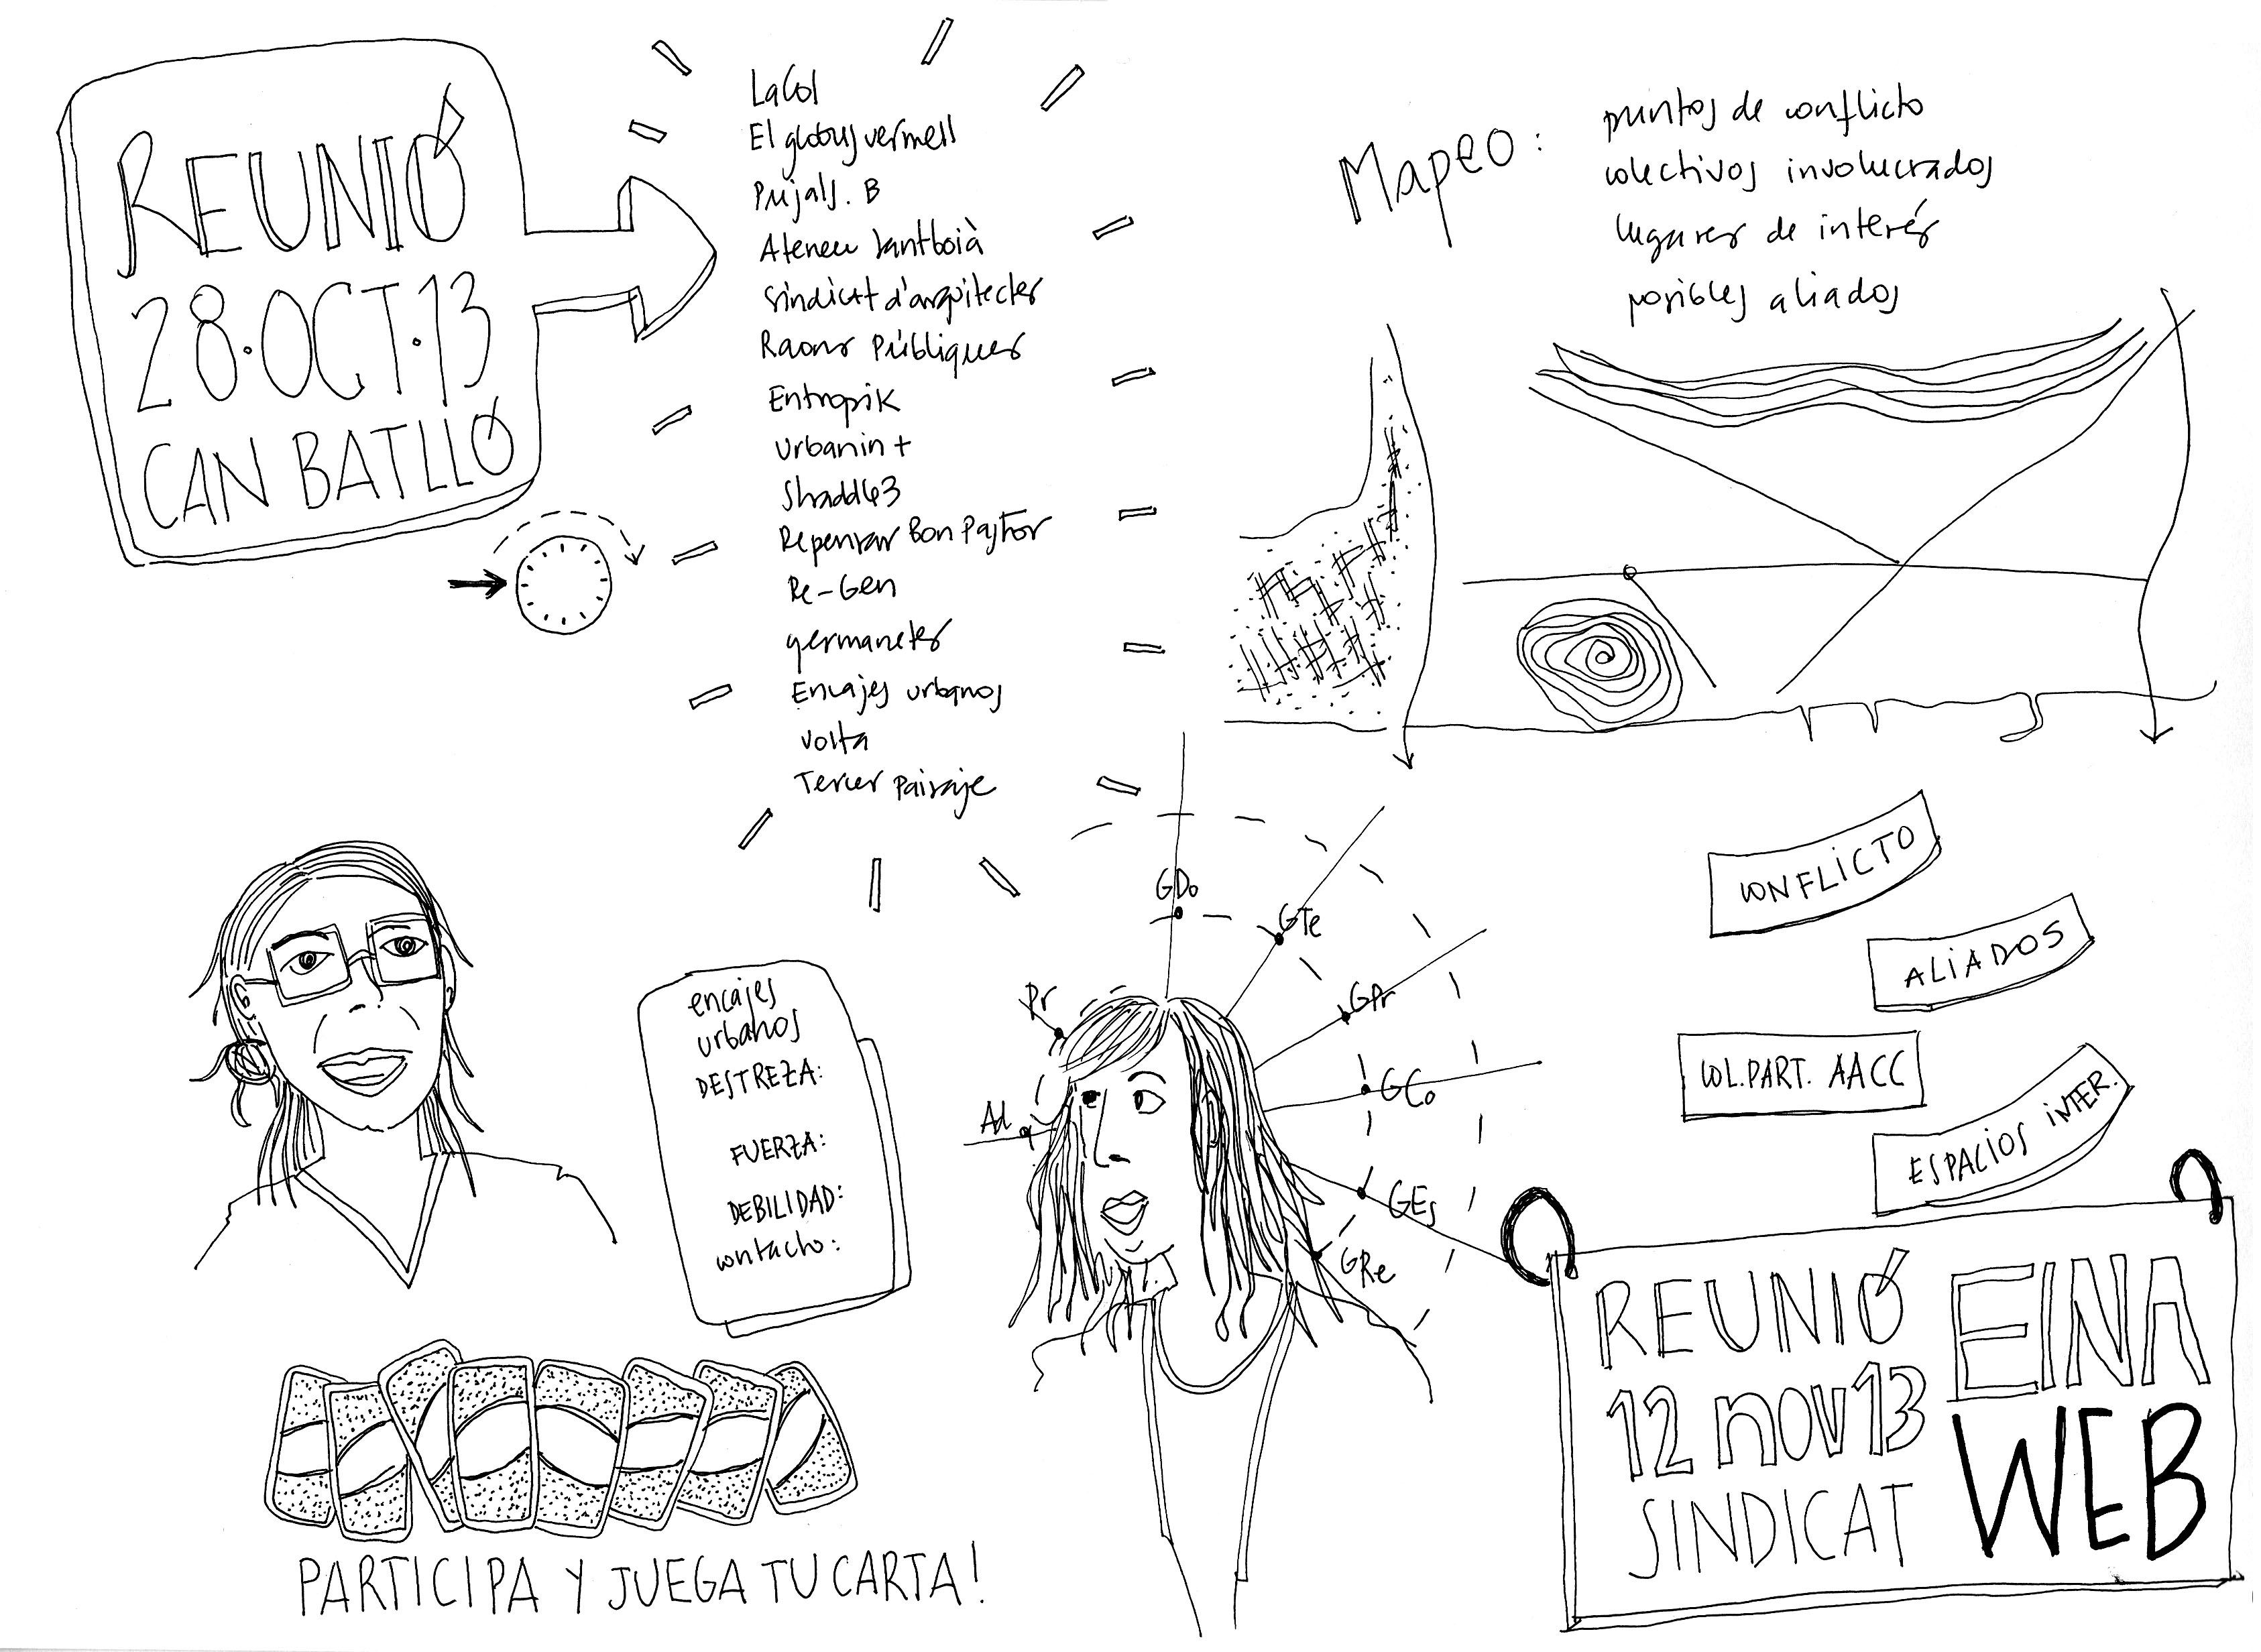 REUNIÓ
28·OCT·13
CAN BATLLÓ
LaCol
El globus vermell
Pujals. B
Ateneu santboià
Sindicat d'arquitectes
Raons Públiques
Entropik
Urbanin +
Straddle3
Repensar Bon Pastor
Re-Gen
germanetes
Encajes urbanos
Volta
Tercer Paisaje
Mapeo:
puntos de conflicto
colectivos involucrados
lugares de interés
posibles aliados
encajes
urbanos
DESTREZA:
FUERZA:
DEBILIDAD:
contacto:
PARTICIPA Y JUEGA TU CARTA!
Ad
Pr
GDo
GTe
GPr
GCo
GEs
GRe
CONFLICTO
ALIADOS
COL.PART. AACC
ESPACIOS INTER.
REUNIÓ
12 nov13
SINDICAT
EINA
WEB